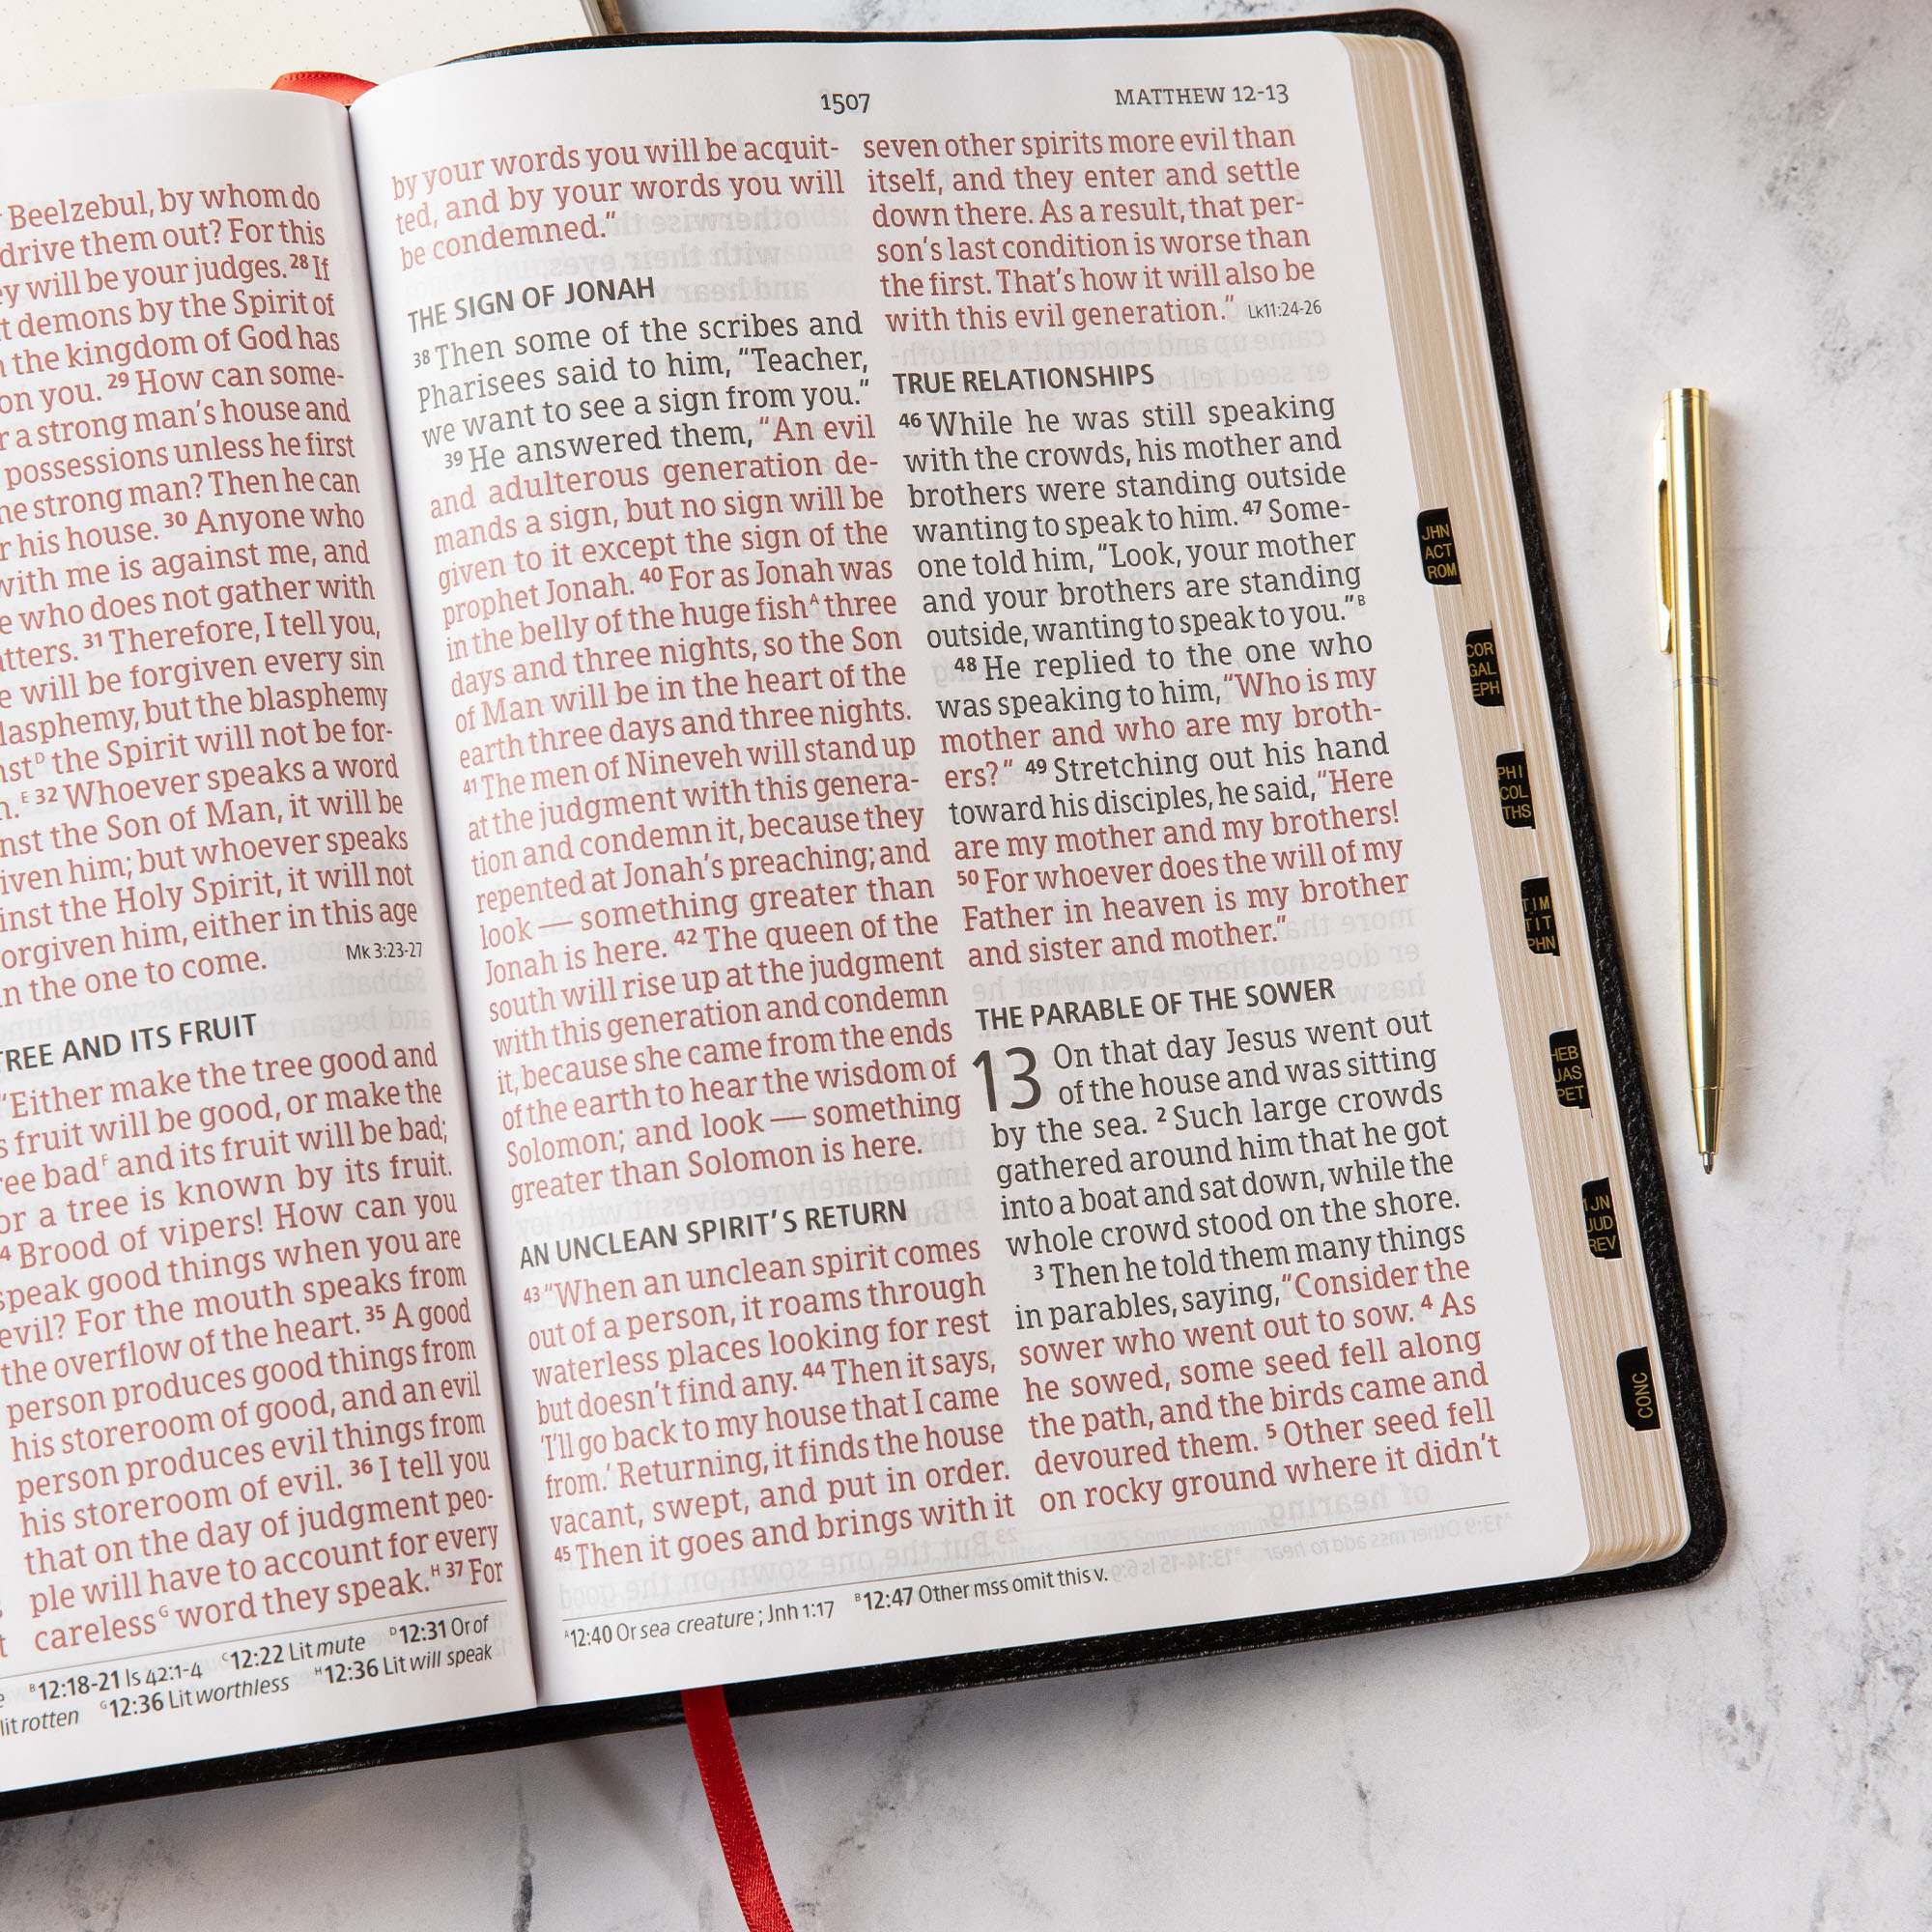 Beelzebul, by whom do
drive them out? For this
will be your judges. 28 If
demons by the Spirit of
the kingdom of God has
on you. 29 How can some-
a strong man's house and
possessions unless he first
strong man? Then he can
his house. 30 Anyone who
with me is against me, and
who does not gather with
31 Therefore, I tell you,
will be forgiven every sin
but the blasphemy
D the Spirit will not be for-
E 32 Whoever speaks a word
the Son of Man, it will be
him; but whoever speaks
the Holy Spirit, it will not
him, either in this age
the one to come. Mk 3:23-27
TREE AND ITS FRUIT
"Either make the tree good and
fruit will be good, or make the
bad F and its fruit will be bad;
a tree is known by its fruit.
Brood of vipers! How can you
speak good things when you are
evil? For the mouth speaks from
the overflow of the heart. 35 A good
person produces good things from
his storeroom of good, and an evil
person produces evil things from
his storeroom of evil. 36 I tell you
that on the day of judgment peo-
ple will have to account for every
careless G word they speak. H 37 For
B 12:18-21 Is 42:1-4 C 12:22 Lit mute D 12:31 Or of
rotten G 12:36 Lit worthless H 12:36 Lit will speak
1507
MATTHEW 12-13
by your words you will be acquit-
ted, and by your words you will
be condemned."
THE SIGN OF JONAH
38 Then some of the scribes and
Pharisees said to him, "Teacher,
we want to see a sign from you."
39 He answered them, "An evil
and adulterous generation de-
mands a sign, but no sign will be
given to it except the sign of the
prophet Jonah. 40 For as Jonah was
in the belly of the huge fish A three
days and three nights, so the Son
of Man will be in the heart of the
earth three days and three nights.
41 The men of Nineveh will stand up
at the judgment with this genera-
tion and condemn it, because they
repented at Jonah's preaching; and
look — something greater than
Jonah is here. 42 The queen of the
south will rise up at the judgment
with this generation and condemn
it, because she came from the ends
of the earth to hear the wisdom of
Solomon; and look — something
greater than Solomon is here.
AN UNCLEAN SPIRIT'S RETURN
43 "When an unclean spirit comes
out of a person, it roams through
waterless places looking for rest
but doesn't find any. 44 Then it says,
'I'll go back to my house that I came
from.' Returning, it finds the house
vacant, swept, and put in order.
45 Then it goes and brings with it
seven other spirits more evil than
itself, and they enter and settle
down there. As a result, that per-
son's last condition is worse than
the first. That's how it will also be
with this evil generation." Lk 11:24-26
TRUE RELATIONSHIPS
46 While he was still speaking
with the crowds, his mother and
brothers were standing outside
wanting to speak to him. 47 Some-
one told him, "Look, your mother
and your brothers are standing
outside, wanting to speak to you." B
48 He replied to the one who
was speaking to him, "Who is my
mother and who are my broth-
ers?" 49 Stretching out his hand
toward his disciples, he said, "Here
are my mother and my brothers!
50 For whoever does the will of my
Father in heaven is my brother
and sister and mother."
THE PARABLE OF THE SOWER
13 On that day Jesus went out
of the house and was sitting
by the sea. 2 Such large crowds
gathered around him that he got
into a boat and sat down, while the
whole crowd stood on the shore.
3 Then he told them many things
in parables, saying, "Consider the
sower who went out to sow. 4 As
he sowed, some seed fell along
the path, and the birds came and
devoured them. 5 Other seed fell
on rocky ground where it didn't
A 12:40 Or sea creature; Jnh 1:17 B 12:47 Other mss omit this v.
JHN
ACT
ROM
COR
GAL
EPH
PHI
COL
THS
TIM
TIT
PHN
HEB
JAS
PET
1JN
JUD
REV
CONC